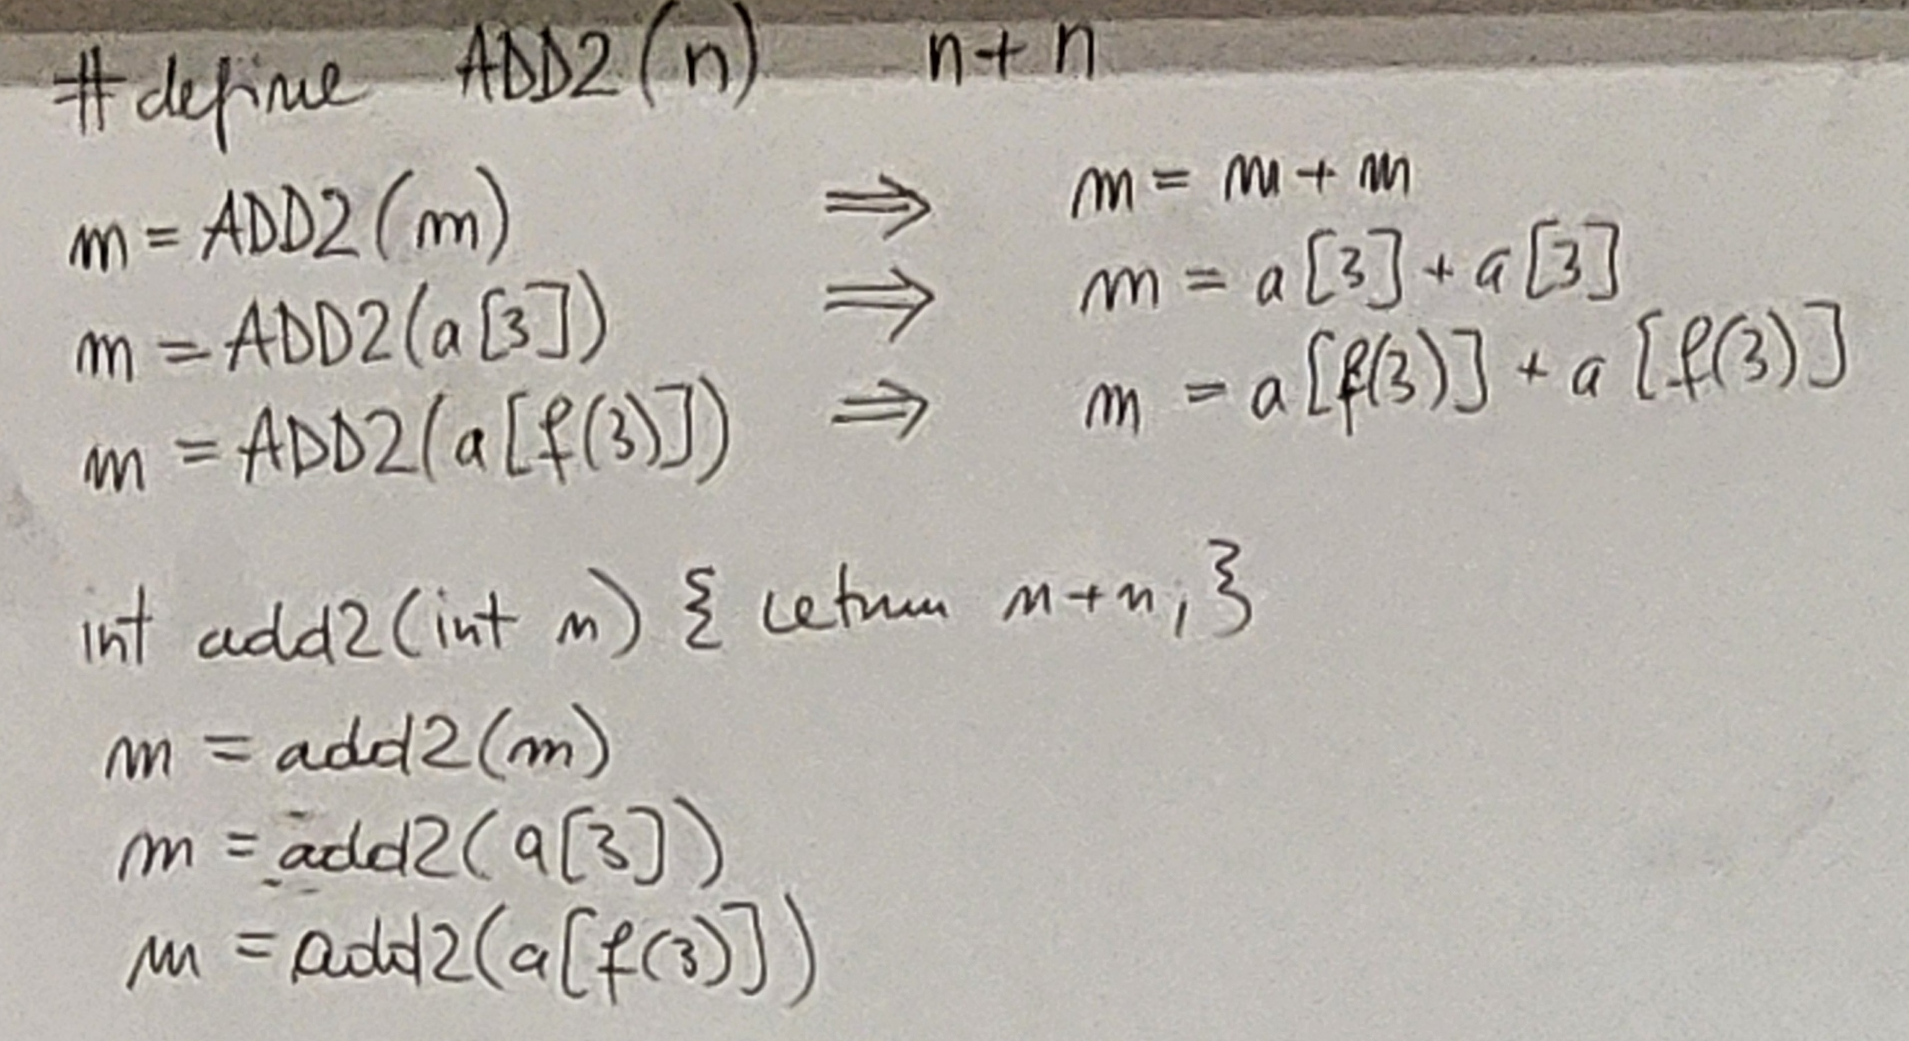 #define ADD2(n) n+n
m = ADD2(m) ⇒ m = m + m
m = ADD2(a[3]) ⇒ m = a[3] + a[3]
m = ADD2(a[f(3)]) ⇒ m = a[f(3)] + a[f(3)]
int add2(int n) { return n+n; }
m = add2(m)
m = add2(a[3])
m = add2(a[f(3)])